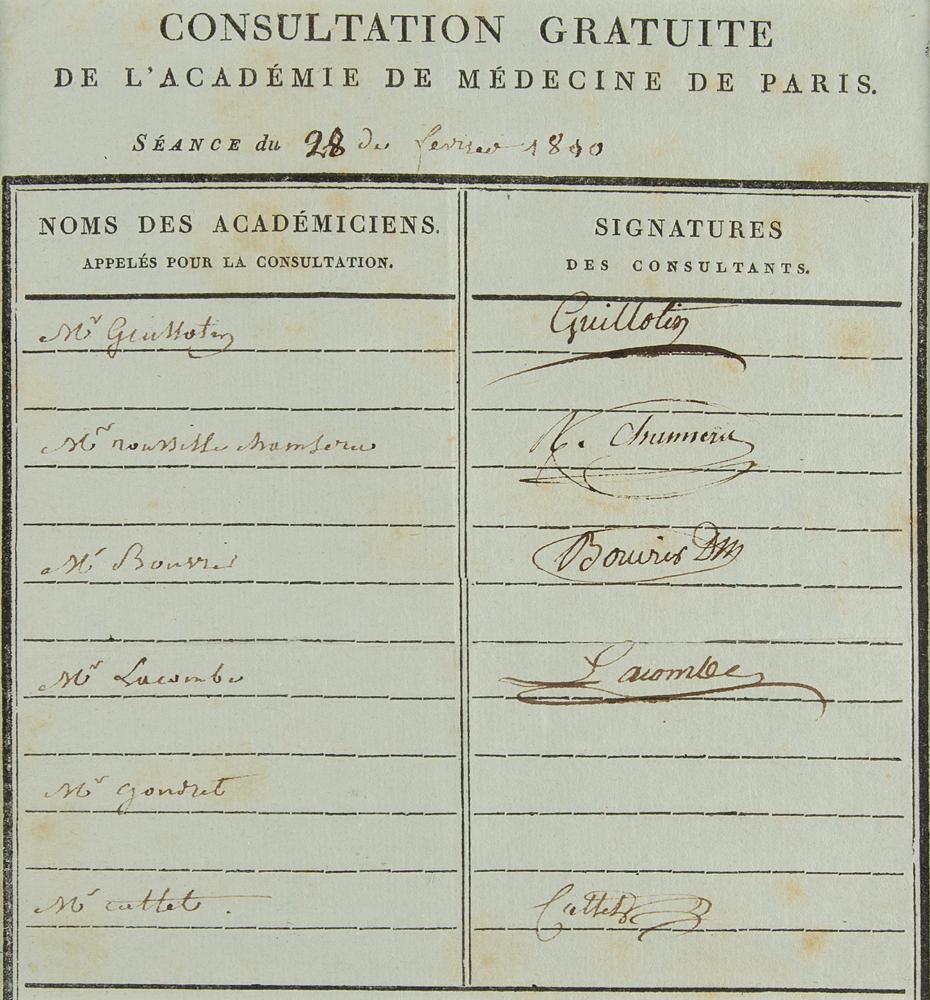 CONSULTATION GRATUITE
DE L'ACADÉMIE DE MÉDECINE DE PARIS.
SÉANCE du 28 de fevrier 1810
NOMS DES ACADÉMICIENS.
APPELÉS POUR LA CONSULTATION.
SIGNATURES
DES CONSULTANTS.
Mr Guillotin
Guillotin
Mr roussille chamseru
R. Chamseru
Mr Bouvier
Bouvier Dm
Mr Lacombe
Lacombe
Mr gondret
Mr cattet
Cattet